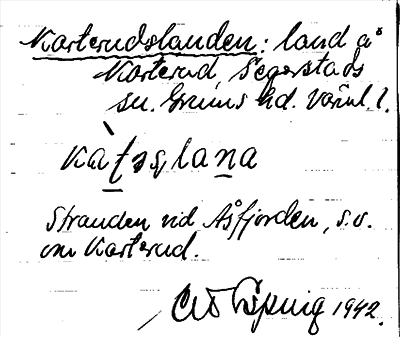 Karterudslanden: land å
Karterud, Segerstads
sn. Grums hd. Värml. l.
kàt̲əsl̲an̲a
Stranden vid Åsfjorden, s.v.
om Karterud.
1942.